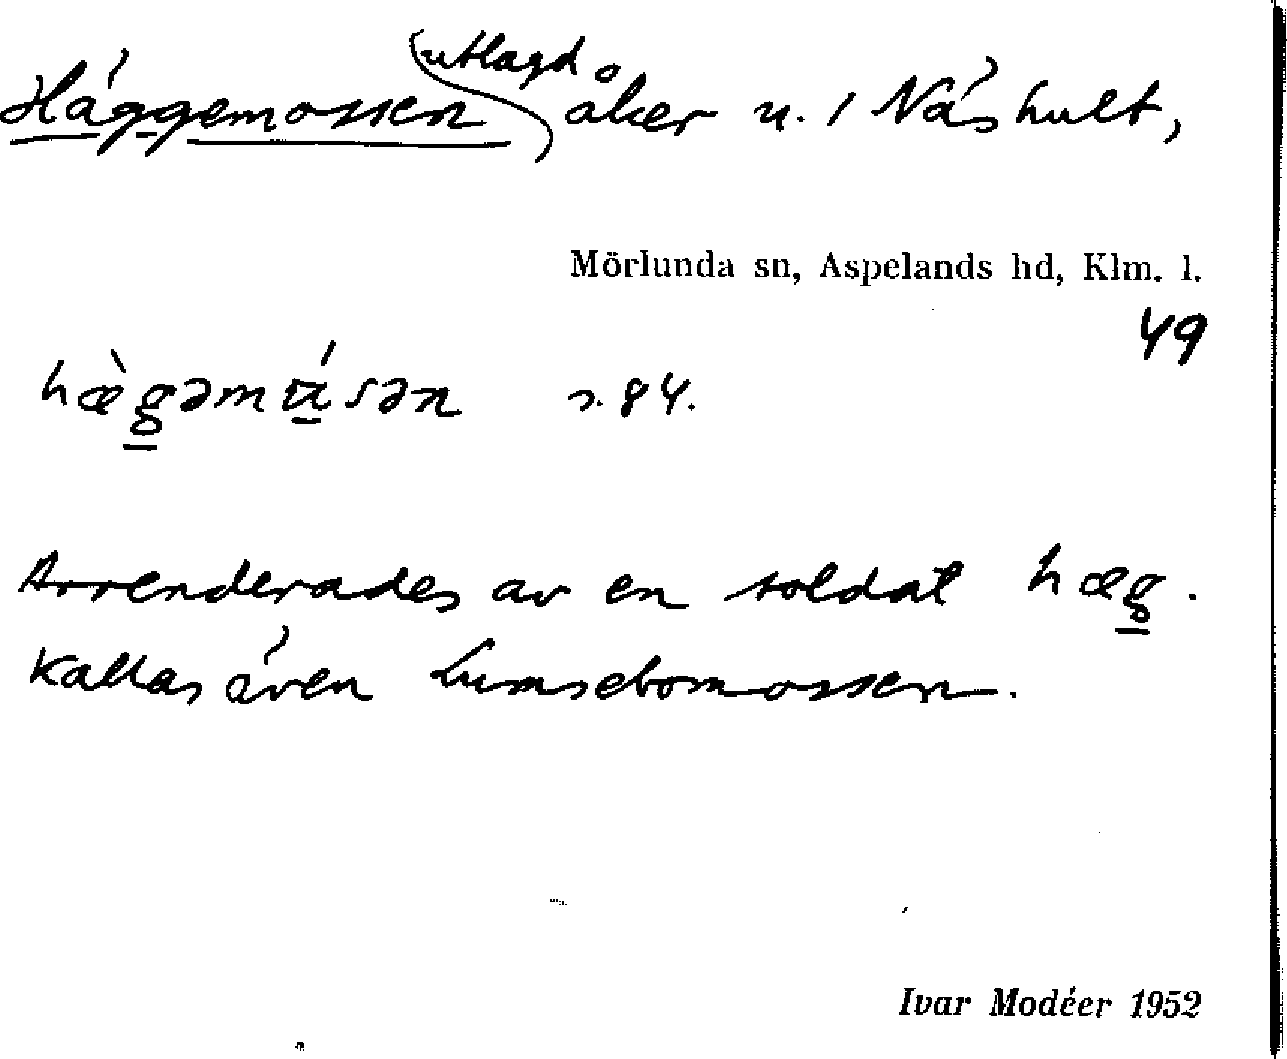 Häggemossen utlagd åker u. 1 Näshult,
Mörlunda sn, Aspelands hd, Klm. l.
49
s. 84.
Arrenderades av en soldat hæg.
Kallas även Lumsebomossen.
Ivar Modéer 1952